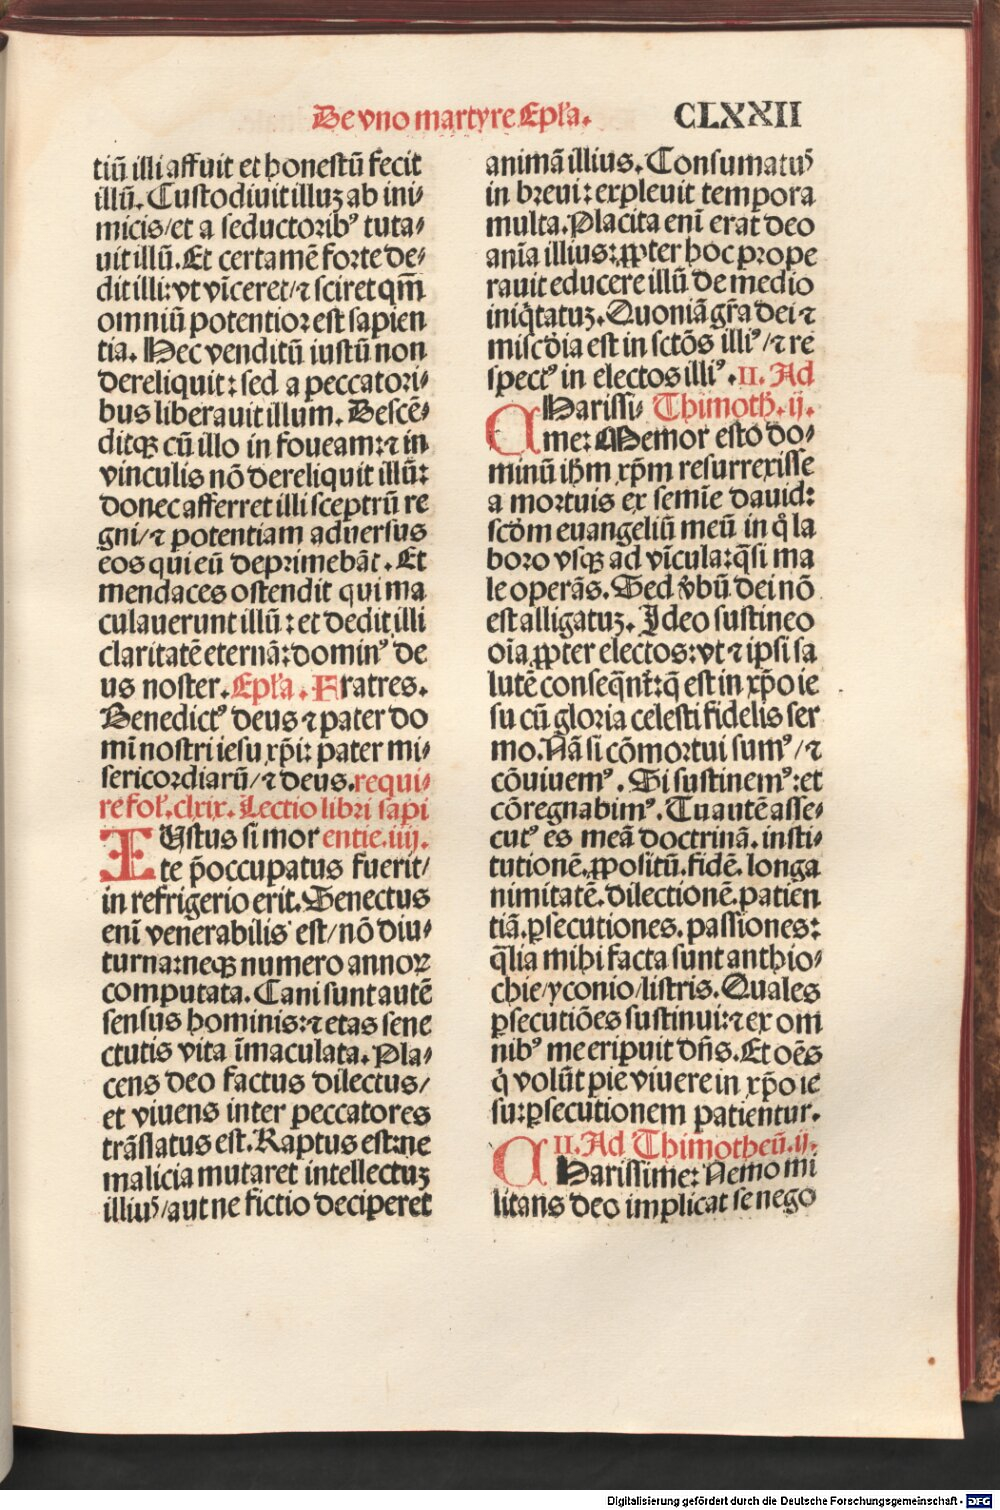 De vno martyre Epła.
CLXXII
tiū illi affuit et honestū fecit
illū. Custodiuit illuꝫ ab ini⸗
micis/et a seductoribꝰ tuta⸗
uit illū. Et certamē forte de⸗
dit illi: vt vīceret/⁊ sciret qm̄
omniū potentior est sapien
tia. Hec venditū iustū non
dereliquit: sed a peccatori⸗
bus liberauit illum. Descē⸗
ditqꝫ cū illo in foueam: ⁊ in
vinculis nō dereliquit illū:
donec afferret illi sceptrū re
gni/⁊ potentiam aduersus
eos qui eū deprimebāt. Et
mendaces ostendit qui ma
culauerunt illū: et dedit illi
claritatē eternā: dominꝰ de
us noster. Epła. Fratres.
Benedictꝰ deus ⁊ pater do
mī nostri iesu xp̄i: pater mi⸗
sericordiarū/⁊ deus. requi⸗
re fol̛. clxix. Lectio libri sapi
IUstus si mor entie. iiij.
te p̄occupatus fuerit/
in refrigerio erit. Senectus
enī venerabilis est/nō diu⸗
turna: neqꝫ numero annoꝝ
computata. Cani sunt autē
sensus hominis: ⁊ etas sene
ctutis vita īmaculata. Pla⸗
cens deo factus dilectus/
et viuens inter peccatores
trāslatus est. Raptus est: ne
malicia mutaret intellectuꝫ
illiuꝰ/aut ne fictio deciperet
animā illius. Consumatuꝰ
in breui: expleuit tempora
multa. Placita enī erat deo
anīa illius: ꝓpter hoc prope
rauit educere illū de medio
iniq̇tatuꝫ. Quoniā gr̄a dei ⁊
misc̄dia est in sctōs illiꝰ/⁊ re
spectꝰ in electos illiꝰ. II. Ad
CHarissi⸗ Thimoth̄. ij.
me: Memor esto do⸗
minū ih̄m xp̄m resurrexisse
a mortuis ex semīe dauid:
scd̄m euangeliū meū in q̊ la
boro vsqꝫ ad vīcula: q̄si ma
le operās. Sed v̄bū dei nō
est alligatuꝫ. Ideo sustineo
oīa ꝓpter electos: vt ⁊ ipsi sa
lutē conseq̄nt̛: q̄ est in xp̄o ie
su cū gloria celesti fidelis ser
mo. Nā si cōmortui sumꝰ/⁊
cōuiuemꝰ. Si sustinemꝰ: et
cōregnabimꝰ. Tu autē asse⸗
cutꝰ es meā doctrinā. insti⸗
tutionē. ꝓpositū. fidē. longa
nimitatē. dilectionē. patien
tiā. ꝑsecutiones. passiones:
q̄lia mihi facta sunt anthio⸗
chie/yconio/listris. Quales
ꝑsecutiōes sustinui: ⁊ ex om
nibꝰ me eripuit dn̄s. Et oēs
q̇ volūt pie viuere in xp̄o ie
su: ꝑsecutionem patientur.
II. Ad Thimotheū. ij.
CHarissime: Nemo mi
litans deo implicat se nego
Digitalisierung gefördert durch die Deutsche Forschungsgemeinschaft - DFG